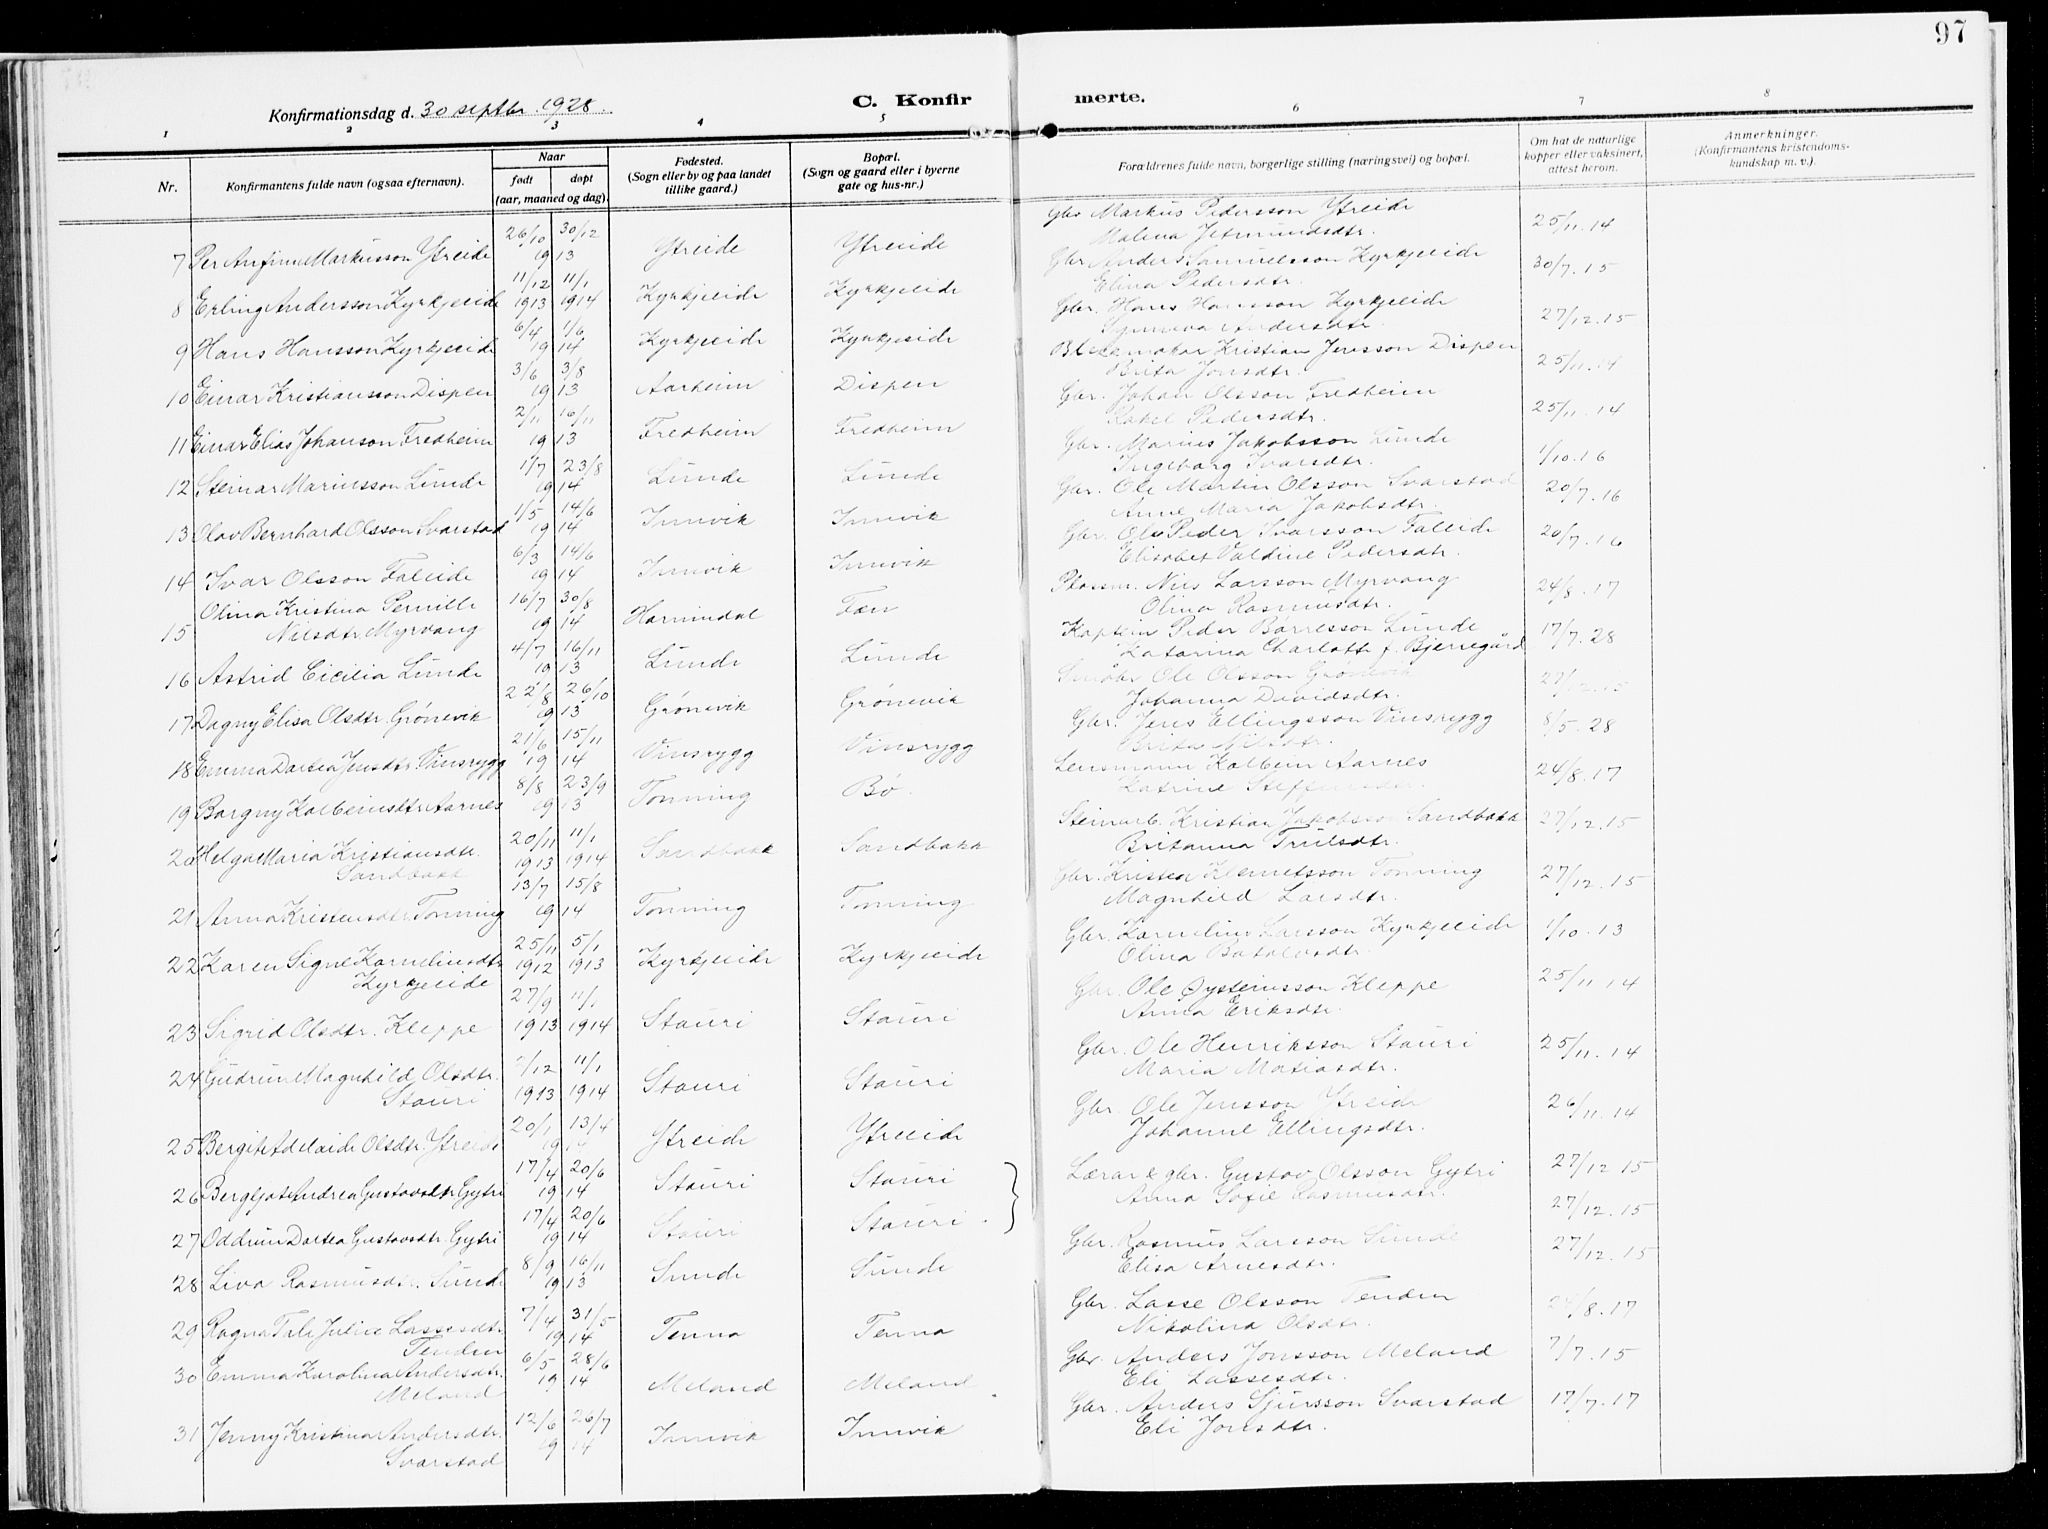 97
Konfirmationsdag d. 30 septbr. 1928.
C. Konfir
merte.
1 2 3 4 5 6 7 8
Nr. Konfirmantens fulde navn (ogsaa efternavn). Naar født døpt (aar, maaned og dag). Fødested. (Sogn eller by og paa landet tillike gaard.) Bopæl. (Sogn og gaard eller i byerne gate og hus-nr.) Forældrenes fulde navn, borgerlige stilling (næringsvei) og bopæl. Om hat de naturlige kopper eller vaksinert, attest herom. Anmerkninger. (Konfirmantens kristendomskundskap m. v.).
7 Per Anfinn Markusson Ytreide 26/10 30/12 1913 Ytreide Ytreeide Gbr. Markus Pedersson Ytreide
Malena Jetmundsdtr. 25/11.14
8 Erling Andersson Kyrkjeeide 11/12 1913 11/1 1914 Kyrkjeeide Kyrkjeeide Gbr. Anders Samuelsson Kyrkjeeide
Elina Pedersdtr. 30/7.15
9 Hans Hansson Kyrkjeeide 6/4 1/6 1914 Kyrkjeeide Kyrkjeeide Gbr. Hans Hansson Kyrkjeeide
Synneva Andersdtr. 27/12.15
10 Einar Kristiansson Dispen 3/6 3/8 1913 Aarheim Dispen Blekkmakar Kristian Jensson Dispen
Brita Jonsdtr. 25/11.14
11 Einar Elias Johanson Fredheim 2/11 16/11 1913 Fredheim Fredheim Gbr. Johan Olsson Fredheim
Rakel Pedersdtr. 25/11.14
12 Steinar Mariusson Lunde 1/7 23/8 1914 Lunde Lunde Gbr. Marius Jakobsson Lunde
Ingeborg Ivarsdtr. 1/10.16
13 Olav Bernhard Olsson Svarstad 1/5 14/6 1914 Innvik Innvik Gbr. Ole Martin Olsson Svarstad
Anne Maria Jakobsdtr. 20/7.16
14 Ivar Olsson Faleide 6/3 14/6 1914 Innvik Innvik Gbr. Ole Peder Ivarsson Faleide
Elisabet Valdine Pedersdtr. 20/7.16
15 Olina Kristina Pernille
Nilsdtr. Myrvang 16/7 30/8 1914 Hornindal Fæn Plassm. Nils Larsson Myrvang
Olina Rasmusdtr. 24/8.17
16 Astrid Cicilia Lunde 4/7 16/11 1913 Lunde Lunde Kaptein Peder Børresson Lunde
Katarina Charlotte f. Bjerregård 17/7.28
17 Dagny Elisa Olsdtr. Grønevik 22/8 26/10 1913 Grønevik Grønevik Småbr. Ole Olsson Grønevik
Johanna Davidsdtr. 27/12.15
18 Emma Dortea Jensdtr. Vinsrygg 21/6 15/11 1914 Vinsrygg Vinsrygg Gbr. Jens Ellingsson Vinsrygg
Brita Nilsdtr. 8/5.28
19 Borgny Kolbeinsdtr. Aarnes 8/8 23/9 1913 Tonning Bø. Lensmann Kolbein Aarnes
Katrine Steffensdtr. 24/8.17
20 Helga Maria Kristiansdtr.
Sandbakk 20/11 1913 11/1 1914 Sandbakk Sandbakk Steinarb. Kristian Jakobsson Sandbakk
Britanna Trulsdtr. 27/12.15
21 Anna Kristensdtr. Tonning 13/7 15/8 1914 Tonning Tonning Gbr. Kristen Klemetsson Tonning
Magnhild Larsdtr. 27/12.15
22 Karen Signe Korneliusdtr.
Kyrkjeeide 25/11 1912 5/1 1913 Kyrkjeeide Kyrkjeeide Gbr. Kornelius Larsson Kyrkjeeide
Olina Botolvsdtr. 1/10.13
23 Sigrid Olsdtr. Kleppe 27/9 1913 11/1 1914 Stauri Stauri Gbr. Ole Øysteinsson Kleppe
Anna Eriksdtr. 25/11.14
24 Gudrun Magnhild Olsdtr.
Stauri /12 1913 11/1 1914 Stauri Stauri Gbr. Ole Henriksson Stauri
Maria Matiasdtr. 25/11.14
25 Bergit Adelaide Olsdtr. Ytreide 20/1 13/4 1914 Ytreide Ytreeide Gbr. Ole Jensson Ytreide
Johanne Ellingsdtr. 26/11.14
26 Bergljot Andrea Gustavsdtr. Gytri 17/4 20/6 1914 Stauri Stauri Lærar & gbr. Gustav Olsson Gytri
Anna Sofie Rasmusdtr. 27/12.15
27 Oddrun Dortea Gustavsdtr. Gytri 17/4 20/6 1914 Stauri Stauri. 27/12.15
28 Liva Rasmusdtr. Sunde 8/9 16/11 1913 Sunde Sunde Gbr. Rasmus Larsson Sunde
Elisa Arnesdtr. 27/12.15
29 Ragna Tali Julice Lassesdtr.
Tenden 7/4 31/5 1914 Tenna Tenna Gbr. Lasse Olsson Tenden
Nikolina Olsdtr. 24/8.17
30 Emma Karolina Andersdtr.
Meland 6/5 28/6 1914 Meland Meland Gbr. Anders Jonsson Meland
Eli Lassesdtr. 7/7.15
31 Jenny Kristina Andersdtr.
Svarstad 12/6 26/7 1914 Innvik Innvik Gbr. Anders Sjursson Svarstad
Eli Jonsdtr. 17/7.17